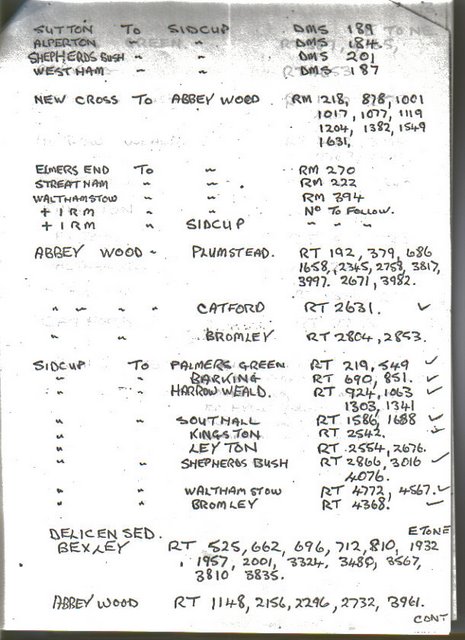 SUTTON TO SIDCUP DMS 189
ALPERTON " " DMS 184
SHEPHERDS BUSH " " DMS 201
WEST HAM " " DMS 187
NEW CROSS TO ABBEY WOOD RM 218, 878, 1001
1017, 1077, 1119
1204, 1382, 1549
1631,
ELMERS END TO " RM 270
STREATHAM " " RM 222
WALTHAMSTOW " " RM 394
+ 1 RM " " No TO FOLLOW.
+ 1 RM " SIDCUP " " "
ABBEY WOOD - PLUMSTEAD. RT 192, 379, 686
1658, 2345, 2758, 3817,
3997. 2671, 3982.
" " " CATFORD RT 2631. ✓
" " " BROMLEY RT 2804, 2853.
SIDCUP TO PALMERS GREEN RT 219, 549 ✓
" " BARKING RT 690, 851. ✓
" " HARROW WEALD. RT 924, 1063 ✓
1303, 1341
" " SOUTHALL RT 1586, 1688 ✓
" " KINGSTON RT 2542.
" " LEYTON RT 2554, 2676.
" " SHEPHERDS BUSH RT 2866, 3016 ✓
4076.
" " WALTHAMSTOW RT 4772, 4567 ✓
" " BROMLEY RT 4368. ✓
DELICENSED. ETONE
BEXLEY RT 525, 662, 696, 712, 810, 1932
1957, 2001, 3324, 3480, 3567,
3810 3835.
ABBEY WOOD RT 1148, 2156, 2296, 2732, 3961.
CONT